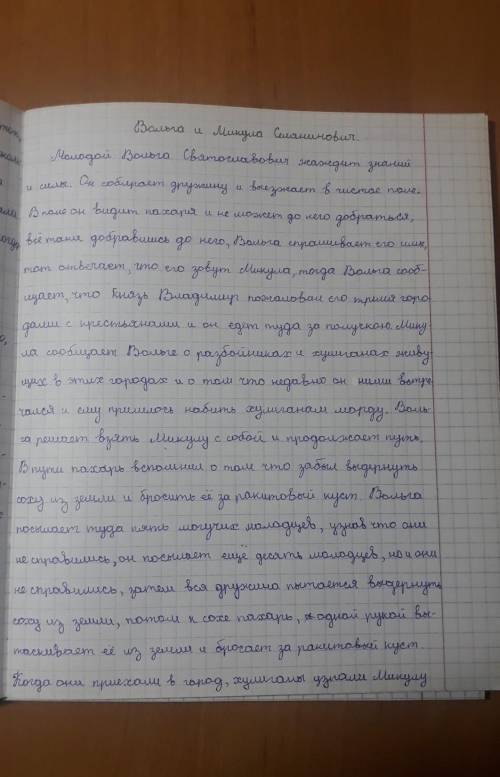 Вольга и Микула Селанинович.
Молодой Вольга Святославович жаждит знаний
и силы. Он собирает дружину и выезжает в чистое поле.
В поле он видит пахаря и не может до него добраться,
всё таки добравшись до него, Вольга спрашивает его имя,
тот отвечает, что его зовут Микула, тогда Вольга сооб-
щает, что Князь Владимир пожаловал его тремя горо-
дами с крестьянами и он едет туда за получкою. Мику
ла сообщает Вольге о разбойниках и хулиганах живу-
щих в этих городах и о том что недавно он ними встре
чался и ему пришлось набить хулиганам морду. Воль-
га решает взять Микулу с собой и продолжает путь.
В пути пахарь вспомнил о том что забыл выдернуть
соху из земли и бросить её за ракитовый куст. Вольга
посылает туда пять могучих молодцев, узнав что они
не справились, он посылает ещё десять молодцев, но и они
не справились, затем вся дружина пытается выдернуть
соху из земли, потом к сохе пахарь, одной рукой вы-
таскивает её из земли и бросает за ракитовый куст.
Когда они приехали в город, хулиганы узнали Микулу